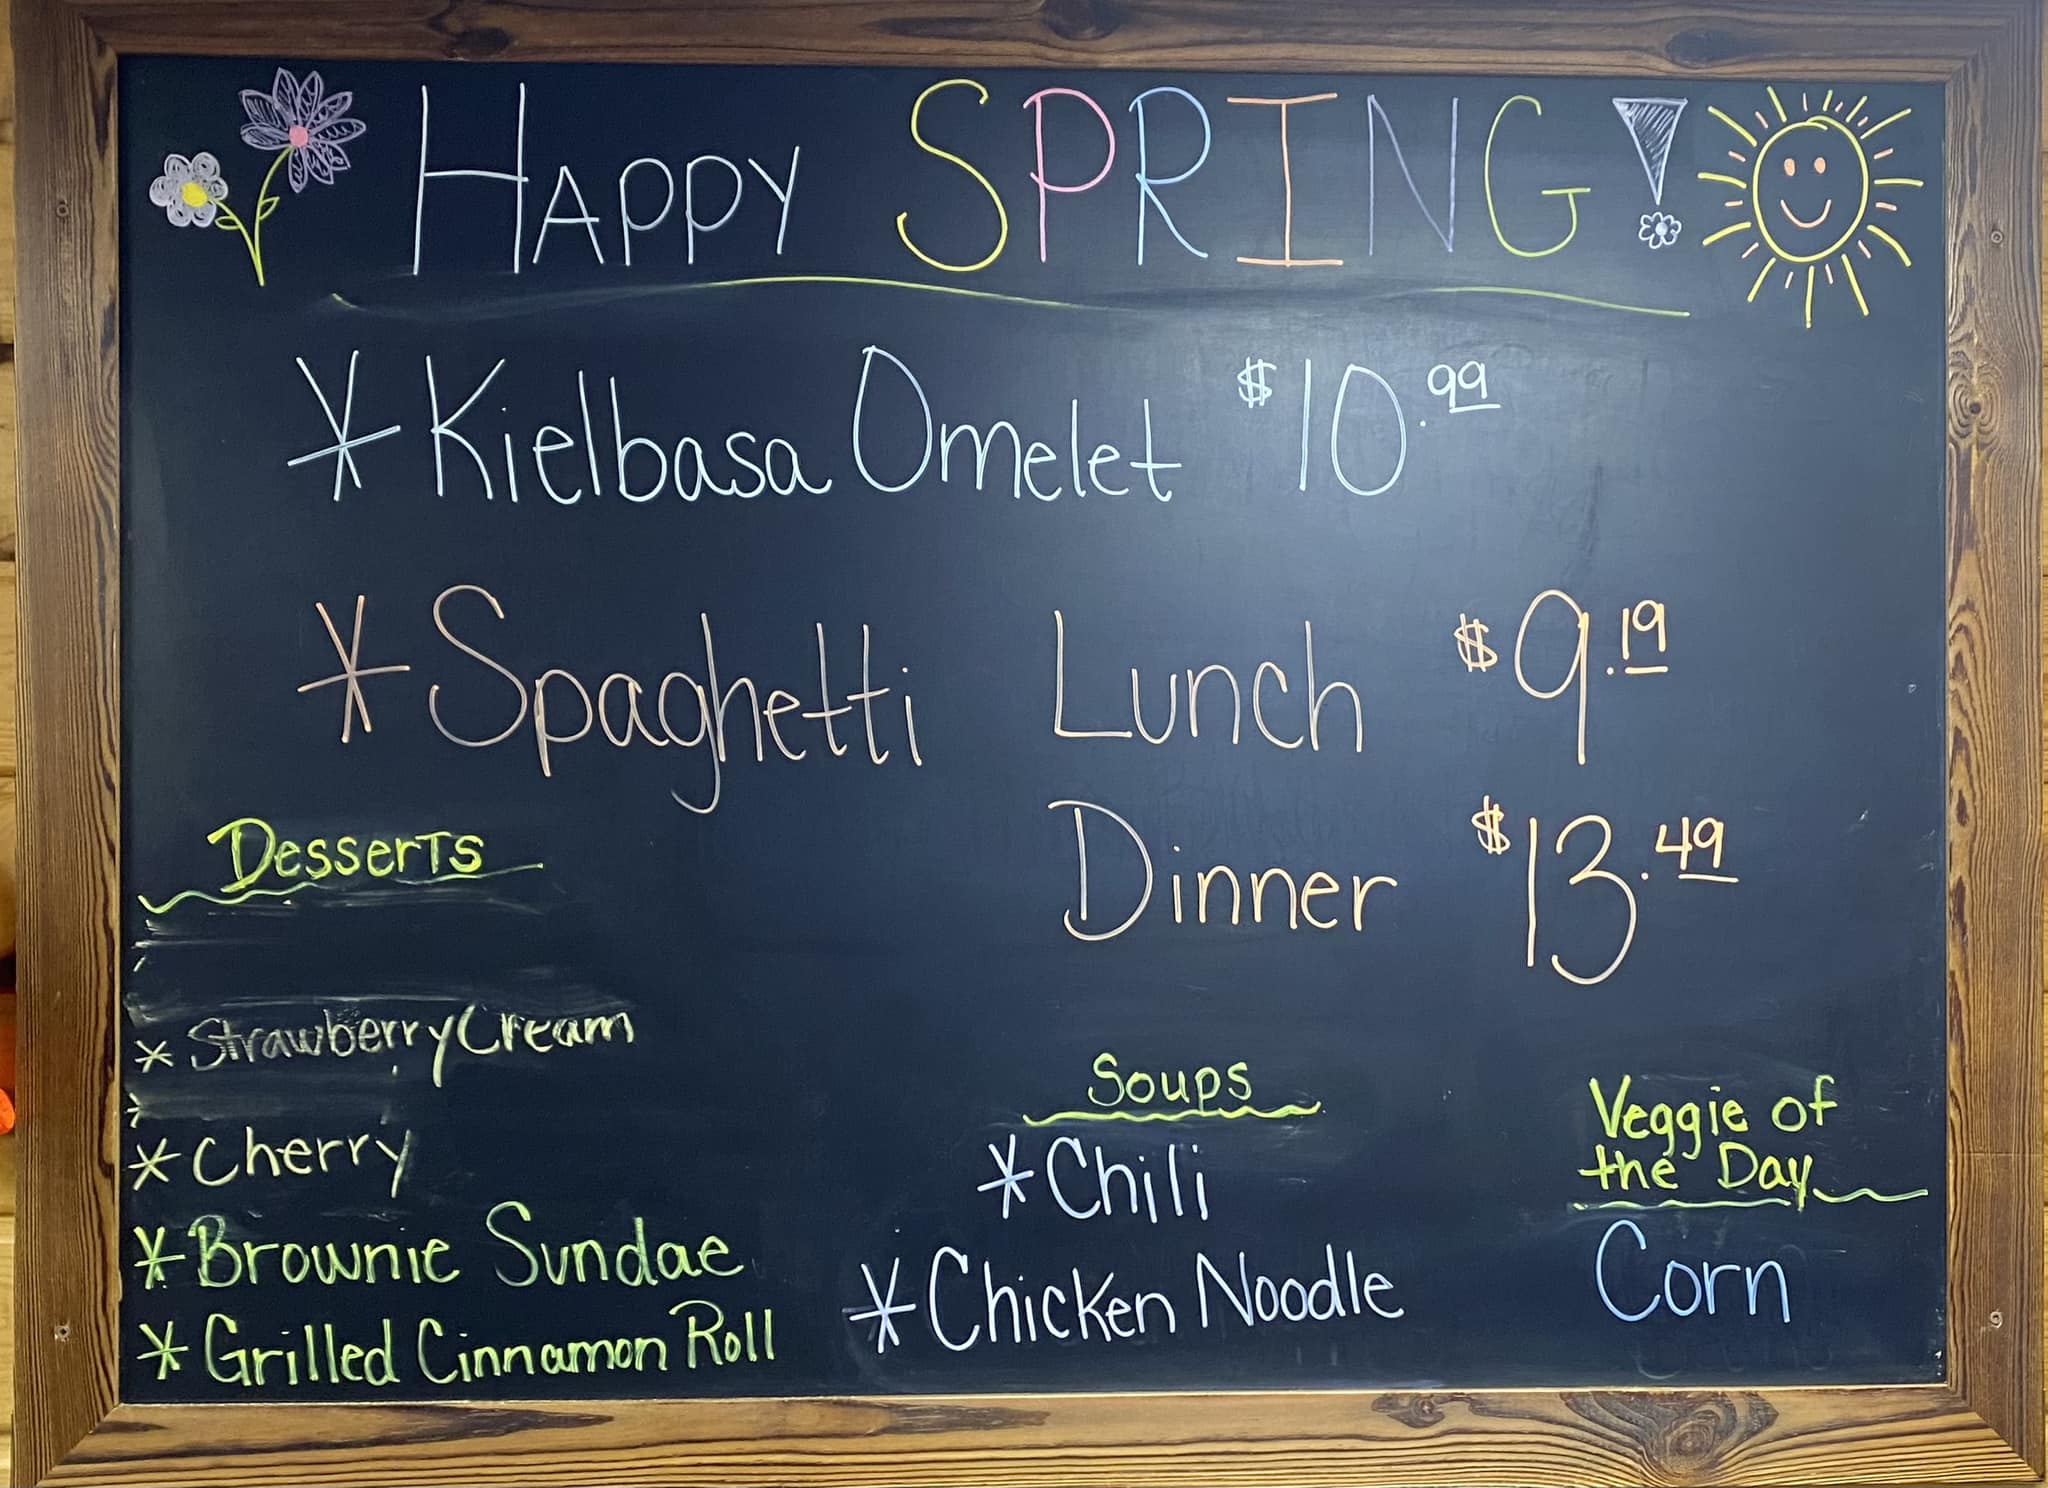 Happy SPRING!
* Kielbasa Omelet $10.99
* Spaghetti Lunch $9.19
Dinner $13.49
Desserts
* Strawberry Cream
* Cherry
* Brownie Sundae
* Grilled Cinnamon Roll
Soups
* Chili
* Chicken Noodle
Veggie of
the Day
Corn